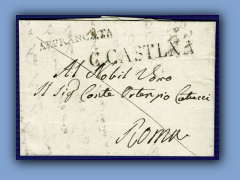 AFFRANCATA
C.CASTLNA
Al Nobil Uomo
Il Sigr Conte Ortensio Catucci
Roma